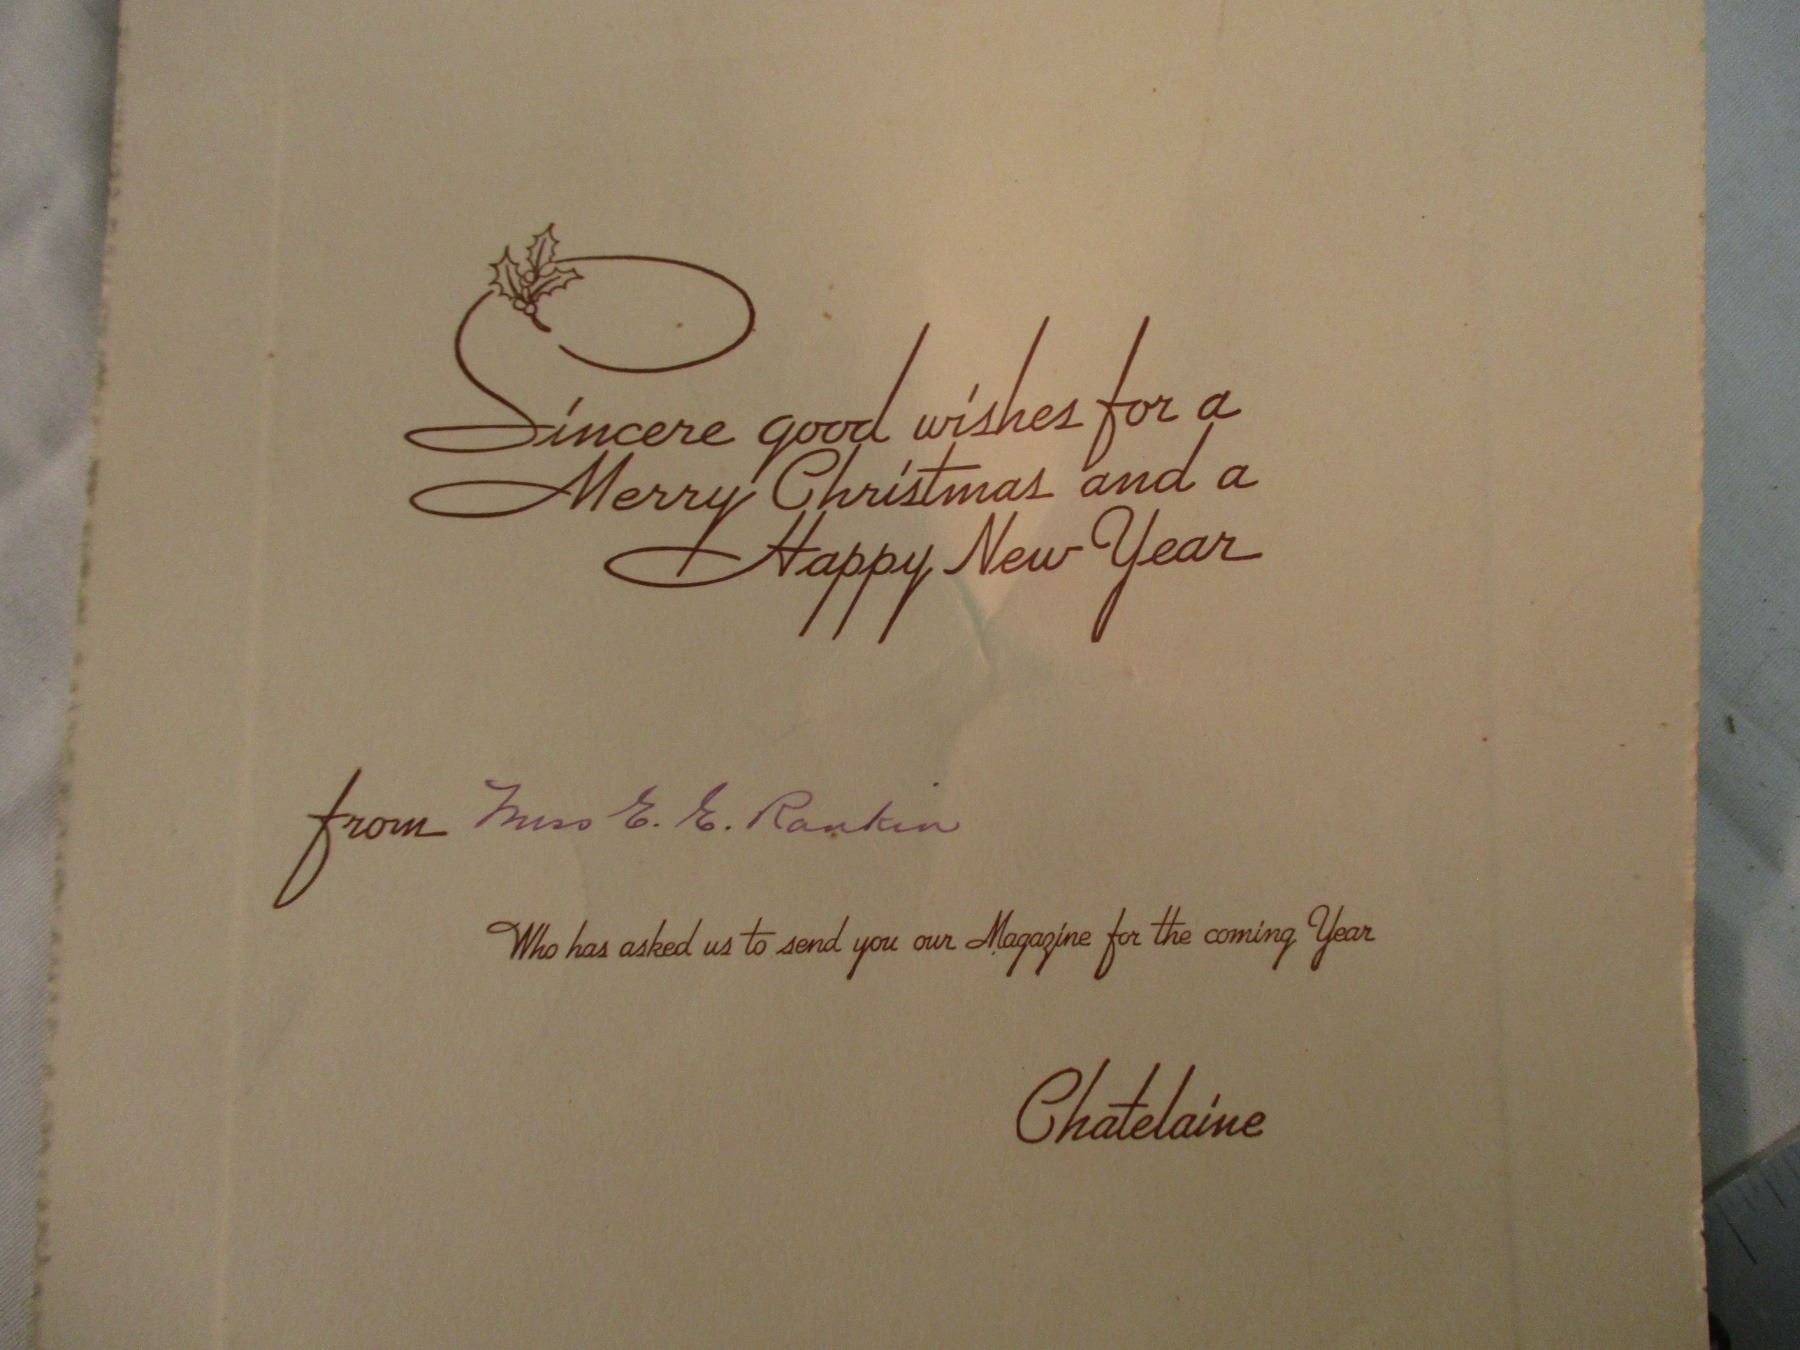 Sincere good wishes for a
Merry Christmas and a
Happy New Year
from Miss E. E. Rankin
Who has asked us to send you our Magazine for the coming Year
Chatelaine